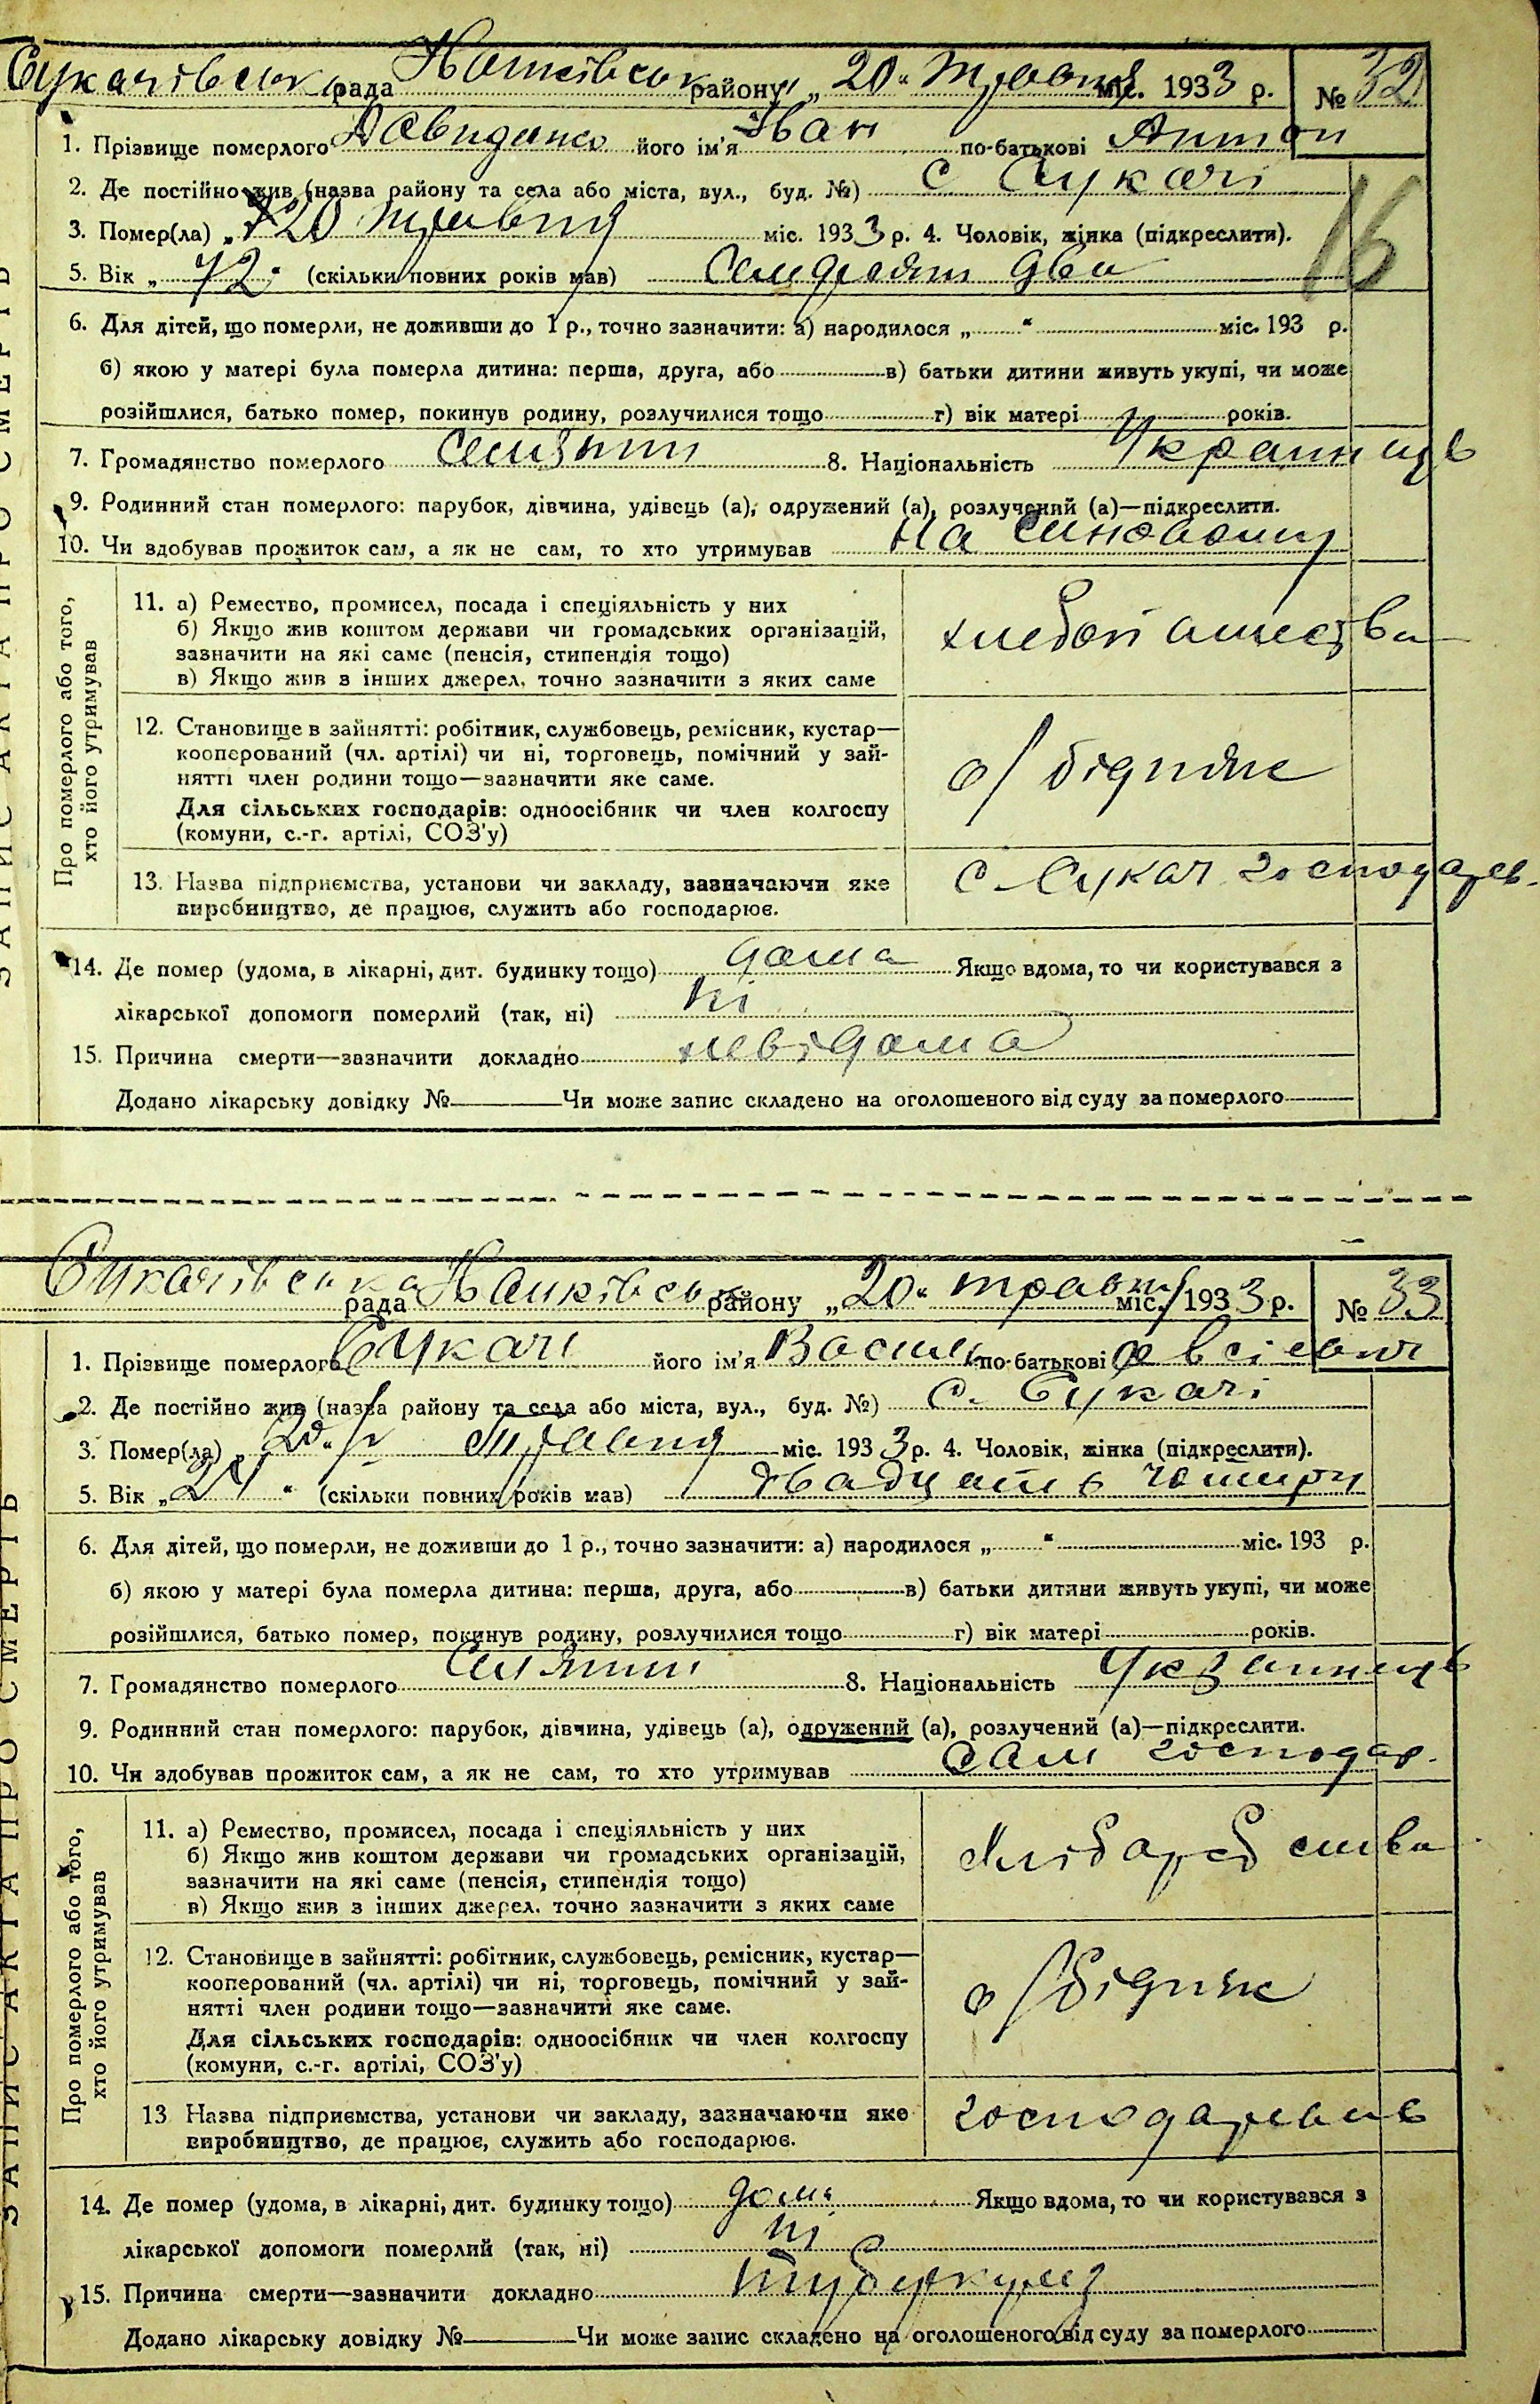 Сукачівська рада Іванківськ району „20“ травня міс. 1933 р. № 32
1. Прізвище померлого Давиденко його ім'я Іван по-батькові Антон
2. Де постійно жив (назва району та села або міста, вул., буд. №) с Сукачі
3. Помер(ла) „20 травня міс. 1933 р. 4. Чоловік, жінка (підкреслити).
16
5. Вік „72“ (скільки повних років мав) Семдесят два
6. Для дітей, що померли, не доживши до 1 р., точно зазначити: а) народилося „ “ міс. 193 р.
б) якою у матері була померла дитина: перша, друга, або в) батьки дитини живуть укупі, чи може
розійшлися, батько помер, покинув родину, розлучилися тощо г) вік матері років.
7. Громадянство померлого селянин 8. Національність Украинець
9. Родинний стан померлого: парубок, дівчина, удівець (а), одружений (а), розлучений (а)—підкреслити.
10. Чи здобував прожиток сам, а як не сам, то хто утримував на
Про померлого або того,
хто його утримував
11. а) Ремество, промисел, посада і спеціяльність у них
б) Якщо жив коштом держави чи громадських організацій,
зазначити на які саме (пенсія, стипендія тощо)
в) Якщо жив з інших джерел, точно зазначити з яких саме
12. Становище в зайнятті: робітник, службовець, ремісник, кустар—
кооперований (чл. артілі) чи ні, торговець, помічний у зай-
нятті член родини тощо—зазначити яке саме.
Для сільських господарів: одноосібник чи член колгоспу
(комуни, с.-г. артілі, СОЗ'у)
о/бідняк
13. Назва підприємства, установи чи закладу, зазначаючи яке
виробництво, де працює, служить або господарює.
с Сукач господарев.
14. Де помер (удома, в лікарні, дит. будинку тощо) дома Якщо вдома, то чи користувався з
лікарської допомоги померлий (так, ні) ні
15. Причина смерти—зазначити докладно невідома
Додано лікарську довідку № Чи може запис складено на оголошеного від суду за померлого
ЗАПИС АКТА ПРО СМЕРТЬ
Сукачівська рада Іванківськ району „20“ травня міс. 1933 р. № 33
1. Прізвище померлого Сукач його ім'я Василь по-батькові Овсієвич
2. Де постійно жив (назва району та села або міста, вул., буд. №) с. Сукачі
3. Помер(ла) „20“ травня міс. 1933 р. 4. Чоловік, жінка (підкреслити).
5. Вік „24“ (скільки повних років мав) двадцать чотири
6. Для дітей, що померли, не доживши до 1 р., точно зазначити: а) народилося „ “ міс. 193 р.
б) якою у матері була померла дитина: перша, друга, або в) батьки дитини живуть укупі, чи може
розійшлися, батько помер, покинув родину, розлучилися тощо г) вік матері років.
7. Громадянство померлого Селянин 8. Національність Украинець
9. Родинний стан померлого: парубок, дівчина, удівець (а), одружений (а), розлучений (а)—підкреслити.
10. Чи здобував прожиток сам, а як не сам, то хто утримував сам господар.
Про померлого або того,
хто його утримував
11. а) Ремество, промисел, посада і спеціяльність у них
б) Якщо жив коштом держави чи громадських організацій,
зазначити на які саме (пенсія, стипендія тощо)
в) Якщо жив з інших джерел, точно зазначити з яких саме
12. Становище в зайнятті: робітник, службовець, ремісник, кустар—
кооперований (чл. артілі) чи ні, торговець, помічний у зай-
нятті член родини тощо—зазначити яке саме.
Для сільських господарів: одноосібник чи член колгоспу
(комуни, с.-г. артілі, СОЗ'у)
о/бідняк
13 Назва підприємства, установи чи закладу, зазначаючи яке
виробництво, де працює, служить або господарює.
14. Де помер (удома, в лікарні, дит. будинку тощо) дома Якщо вдома, то чи користувався з
лікарської допомоги померлий (так, ні) ні
15. Причина смерти—зазначити докладно туберкулез
Додано лікарську довідку № Чи може запис складено на оголошеного від суду за померлого
ЗАПИС АКТА ПРО СМЕРТЬ